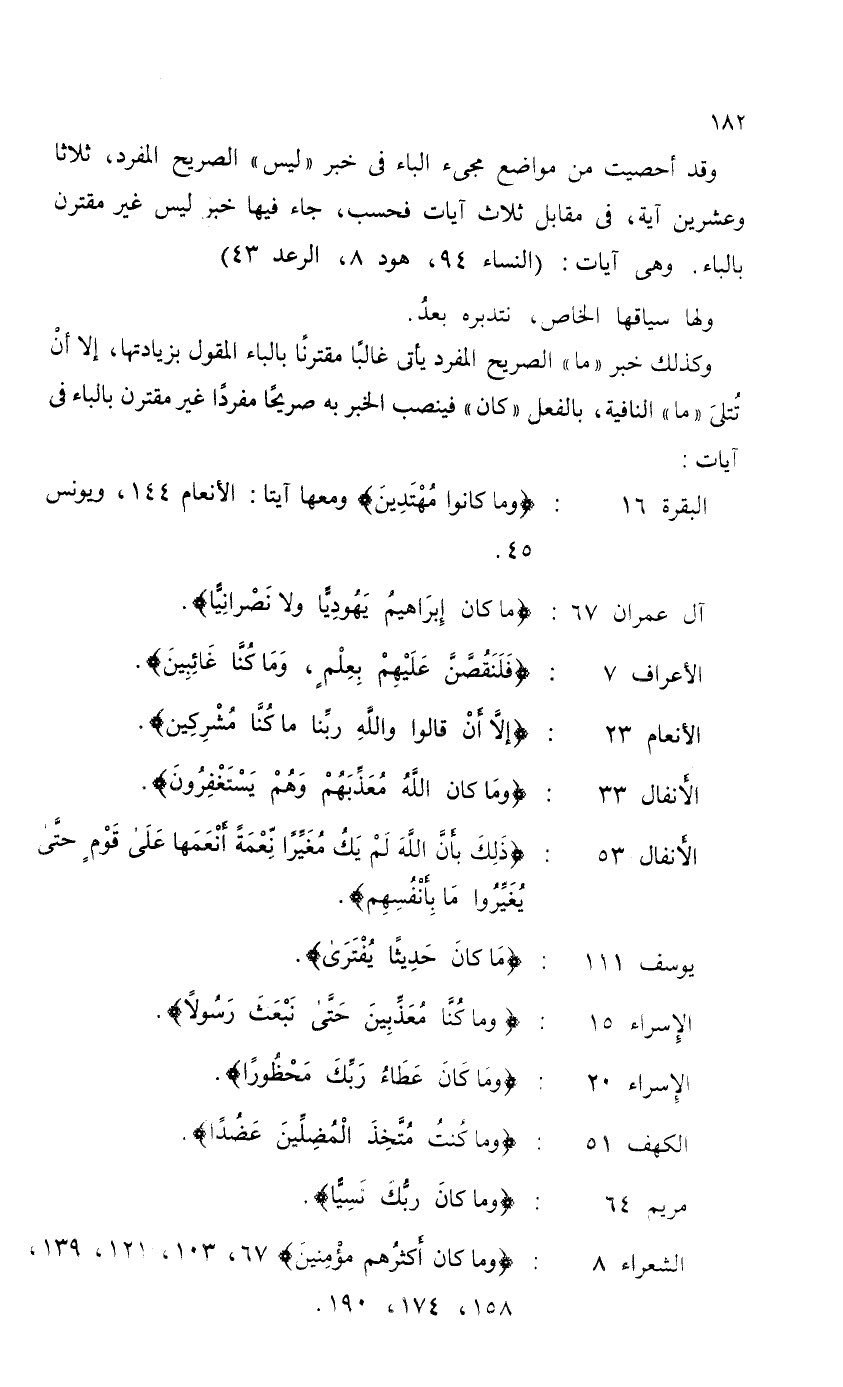 ١٨٢
وقد أحصيت من مواضع مجىء الباء فى خبر «ليس» الصريح المفرد، ثلاثا
وعشرين آية، فى مقابل ثلاث آيات فحسب، جاء فيها خبر ليس غير مقترن
بالباء. وهى آيات: (النساء ٩٤، هود ٨، الرعد ٤٣)
ولها سياقها الخاص، نتدبره بعدُ.
وكذلك خبر «ما» الصريح المفرد يأتى غالبًا مقترنًا بالباء المقول بزيادتها، إلا أنْ
تُتلىَ «ما» النافية، بالفعل «كان» فينصب الخبر به صريحًا مفردًا غير مقترن بالباء فى
آيات:
البقرة ١٦ : ﴿وما كانوا مُهْتَدِينَ﴾ ومعها آيتا: الأنعام ١٤٤، ويونس
٤٥.
آل عمران ٦٧ : ﴿ما كان إبرَاهيمُ يَهُودِيًّا ولا نَصْرانِيًّا﴾.
الأعراف ٧ : ﴿فَلَنَقُصَّنَّ عَلَيْهِمْ بِعِلْمٍ، وَمَا كُنَّا غَائِبِينَ﴾.
الأنعام ٢٣ : ﴿إلَّا أَنْ قالوا واللَّهِ ربِّنا ما كُنَّا مُشْرِكِين﴾.
الأنفال ٣٣ : ﴿ومَا كان اللَّهُ مُعَذِّبَهُمْ وَهُمْ يَسْتَغْفِرُونَ﴾.
الأنفال ٥٣ : ﴿ذَلِكَ بأَنَّ اللَّهَ لَمْ يَكُ مُغَيِّرًا نِّعْمَةً أَنْعَمَها عَلَىٰ قَوْمٍ حتَّىٰ
يُغَيِّرُوا مَا بِأَنْفُسِهِم﴾.
يوسف ١١١ : ﴿مَا كانَ حَدِيثًا يُفْتَرَىٰ﴾.
الإسراء ١٥ : ﴿وما كُنَّا مُعَذِّبِينَ حَتَّىٰ نَبْعَثَ رَسُولًا﴾.
الإسراء ٢٠ : ﴿ومَا كَانَ عَطَاءُ رَبِّكَ مَحْظُورًا﴾.
الكهف ٥١ : ﴿وما كُنتُ مُتَّخِذَ الْمُضِلِّينَ عَضُدًا﴾.
مريم ٦٤ : ﴿وما كانَ ربُّكَ نَسِيًّا﴾.
الشعراء ٨ : ﴿وما كان أكثرُهم مؤْمِنينَ﴾ ٦٧، ١٠٣، ١٢١، ١٣٩،
١٥٨، ١٧٤، ١٩٠.